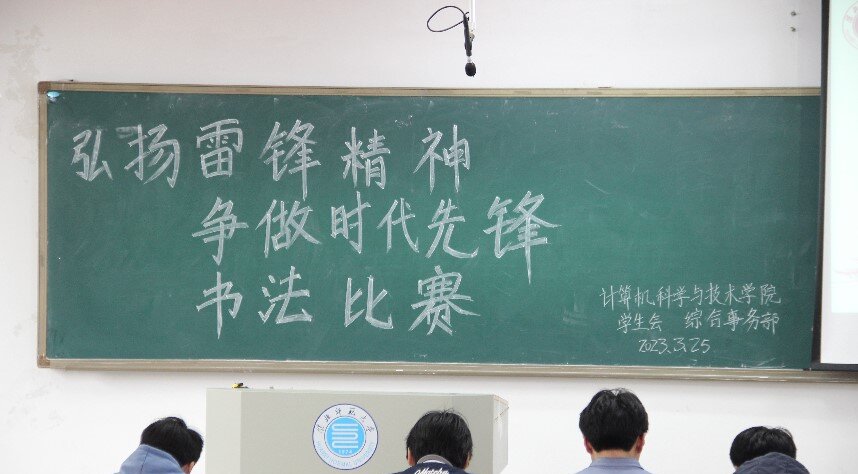 弘扬雷锋精神
争做时代先锋
书法比赛
计算机科学与技术学院
学生会 综合事务部
2023.3.25
1974